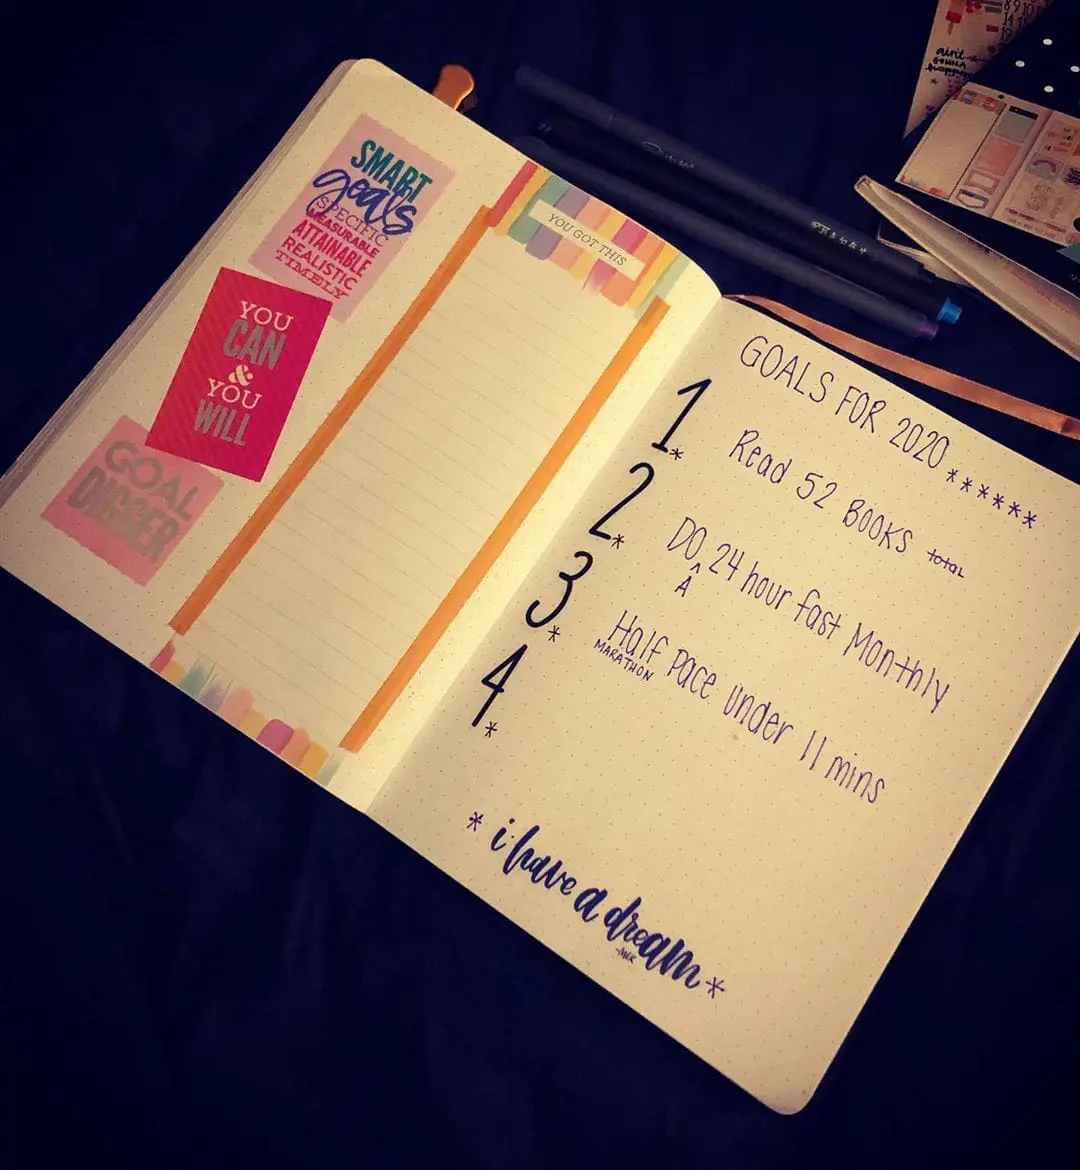 SMART
goals
SPECIFIC
MEASURABLE
ATTAINABLE
REALISTIC
TIMELY
YOU
CAN
&
YOU
WILL
GOAL
DIGGER
YOU GOT THIS
GOALS FOR 2020 ******
1. Read 52 BOOKS total
2. DO A 24 hour fast Monthly
3. Half MARATHON Pace under 11 mins
4.
* i have a dream *
-MLK
ain't
GONNA
happen